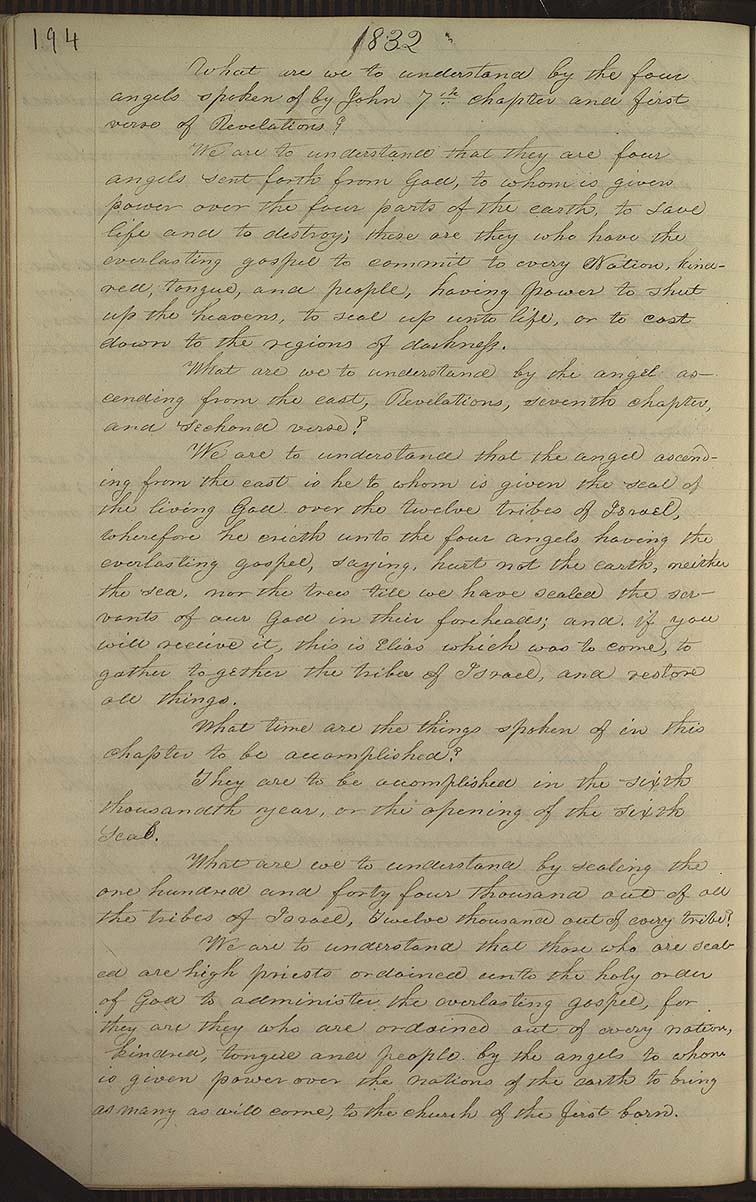 194
1832
What are we to understand by the four
angels spoken of by John 7th chapter and first
verse of Revelations?
We are to understand that they are four
angels sent forth from God, to whom is given
power over the four parts of the earth, to save
life and to destroy; these are they who have the
everlasting gospel to commit to every Nation, kind-
red, tongue, and people, having power to shut
up the heavens, to seal up unto life, or to cast
down to the regions of darkness.
What are we to understand by the angel as-
cending from the east, Revelations, seventh chapter,
and sechond verse?
We are to understand that the angel ascend-
ing from the east is he to whom is given the seal of
the living God over the twelve tribes of Israel,
wherefore he crieth unto the four angels having the
everlasting gospel, saying, hurt not the earth, neither
the sea, nor the trees till we have sealed the ser-
vants of our God in their foreheads; and if you
will receive it, this is Elias which was to come, to
gather together the tribes of Israel, and restore
all things.
What time are the things spoken of in this
chapter to be accomplished?
They are to be accomplished in the sixth
thousandth year, or the opening of the sixth
Seal.
What are we to understand by sealing the
one hundred and forty four thousand out of all
the tribes of Israel, Twelve thousand out of every tribe?
We are to understand that those who are seal-
ed are high priests ordained unto the holy order
of God to administer the everlasting gospel, for
they are they who are ordained out of every nation,
kindred, tongue and people by the angels to whom
is given power over the nations of the earth to bring
as many as will come, to the church of the first born.